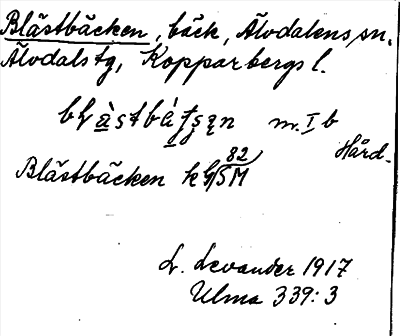 Blästbäcken, bäck, Älvdalens sn,
Älvdals tg, Kopparbergs l.
m. I b
Hård.
Blästbäcken
82
SM
L. Levander 1917
Ulma 339:3